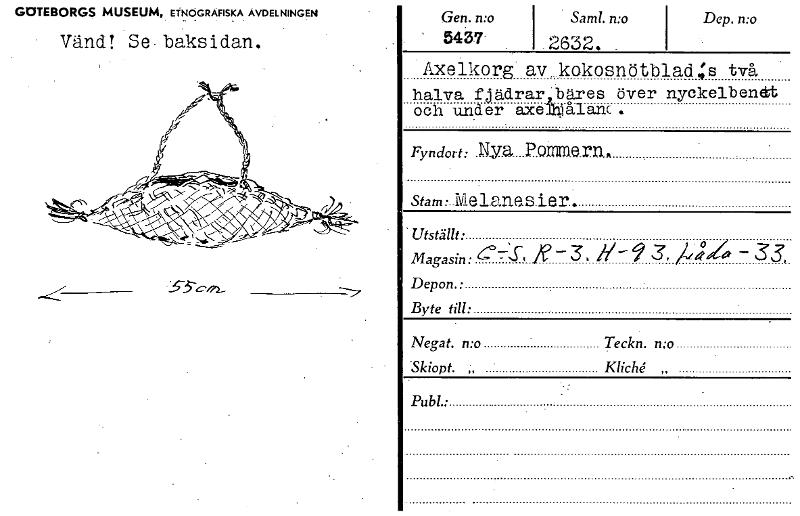 GÖTEBORGS MUSEUM, ETNOGRAFISKA AVDELNINGEN
Vänd! Se baksidan.
55cm
Gen. n:o
5437
Saml. n:o
2632.
Dep. n:o
Axelkorg av kokosnötblad,s två
halva fjädrar, bäres över nyckelbenet
och under axelhålan.
Fyndort: Nya Pommern.
Stam: Melanesier.
Utställt:
Magasin: C-S. R-3. H-93. Låda-33.
Depon.:
Byte till:
Negat. n:o
Teckn. n:o
Skiopt. „
Kliché „
Publ.: